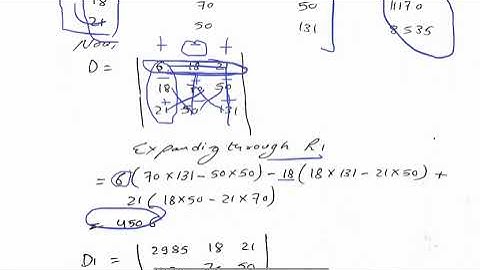 18 70 50 1170
21 50 131 8535
Now,
+ - +
D = 6 18 21
18 70 50
21 50 131
Expanding through R1
= 6(70×131-50×50)-18(18×131-21×50)+
21(18×50-21×70)
= 4506
D1 = 2985 18 21
70 50